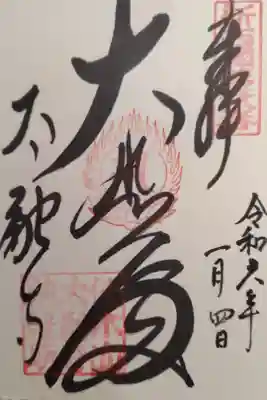 奉拝
令和六年
一月四日
大悲殿
太融寺